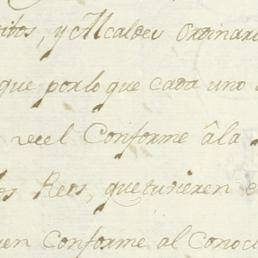 itos, y Alcaldes Ordinari
que por lo que cada uno
vcel Conforme âla
os Reos, que tuvieren e
en Conforme al Conoci